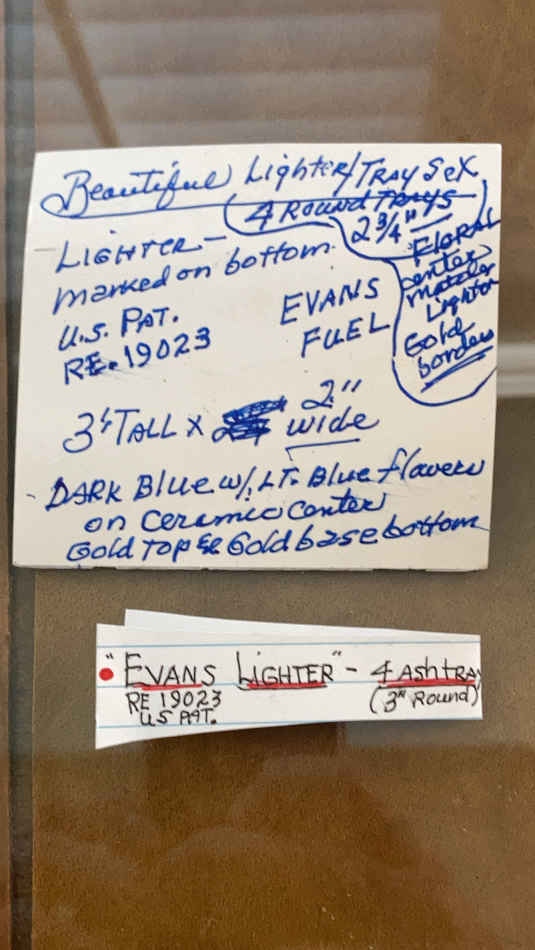 Beautiful Lighter/Tray Set
4 Round Trays
2 3/4"
Floral
center
Matches
Lighter
Gold
borders
LIGHTER -
marked on bottom
U.S. PAT.
RE. 19023
EVANS
FUEL
3" TALL X 2"
wide
- DARK Blue w/ LT. Blue flowers
on ceramic center
Gold TOP & Gold base bottom
"EVANS LIGHTER" - 4 AshTRA
RE 19023
US PAT.
(3" Round)